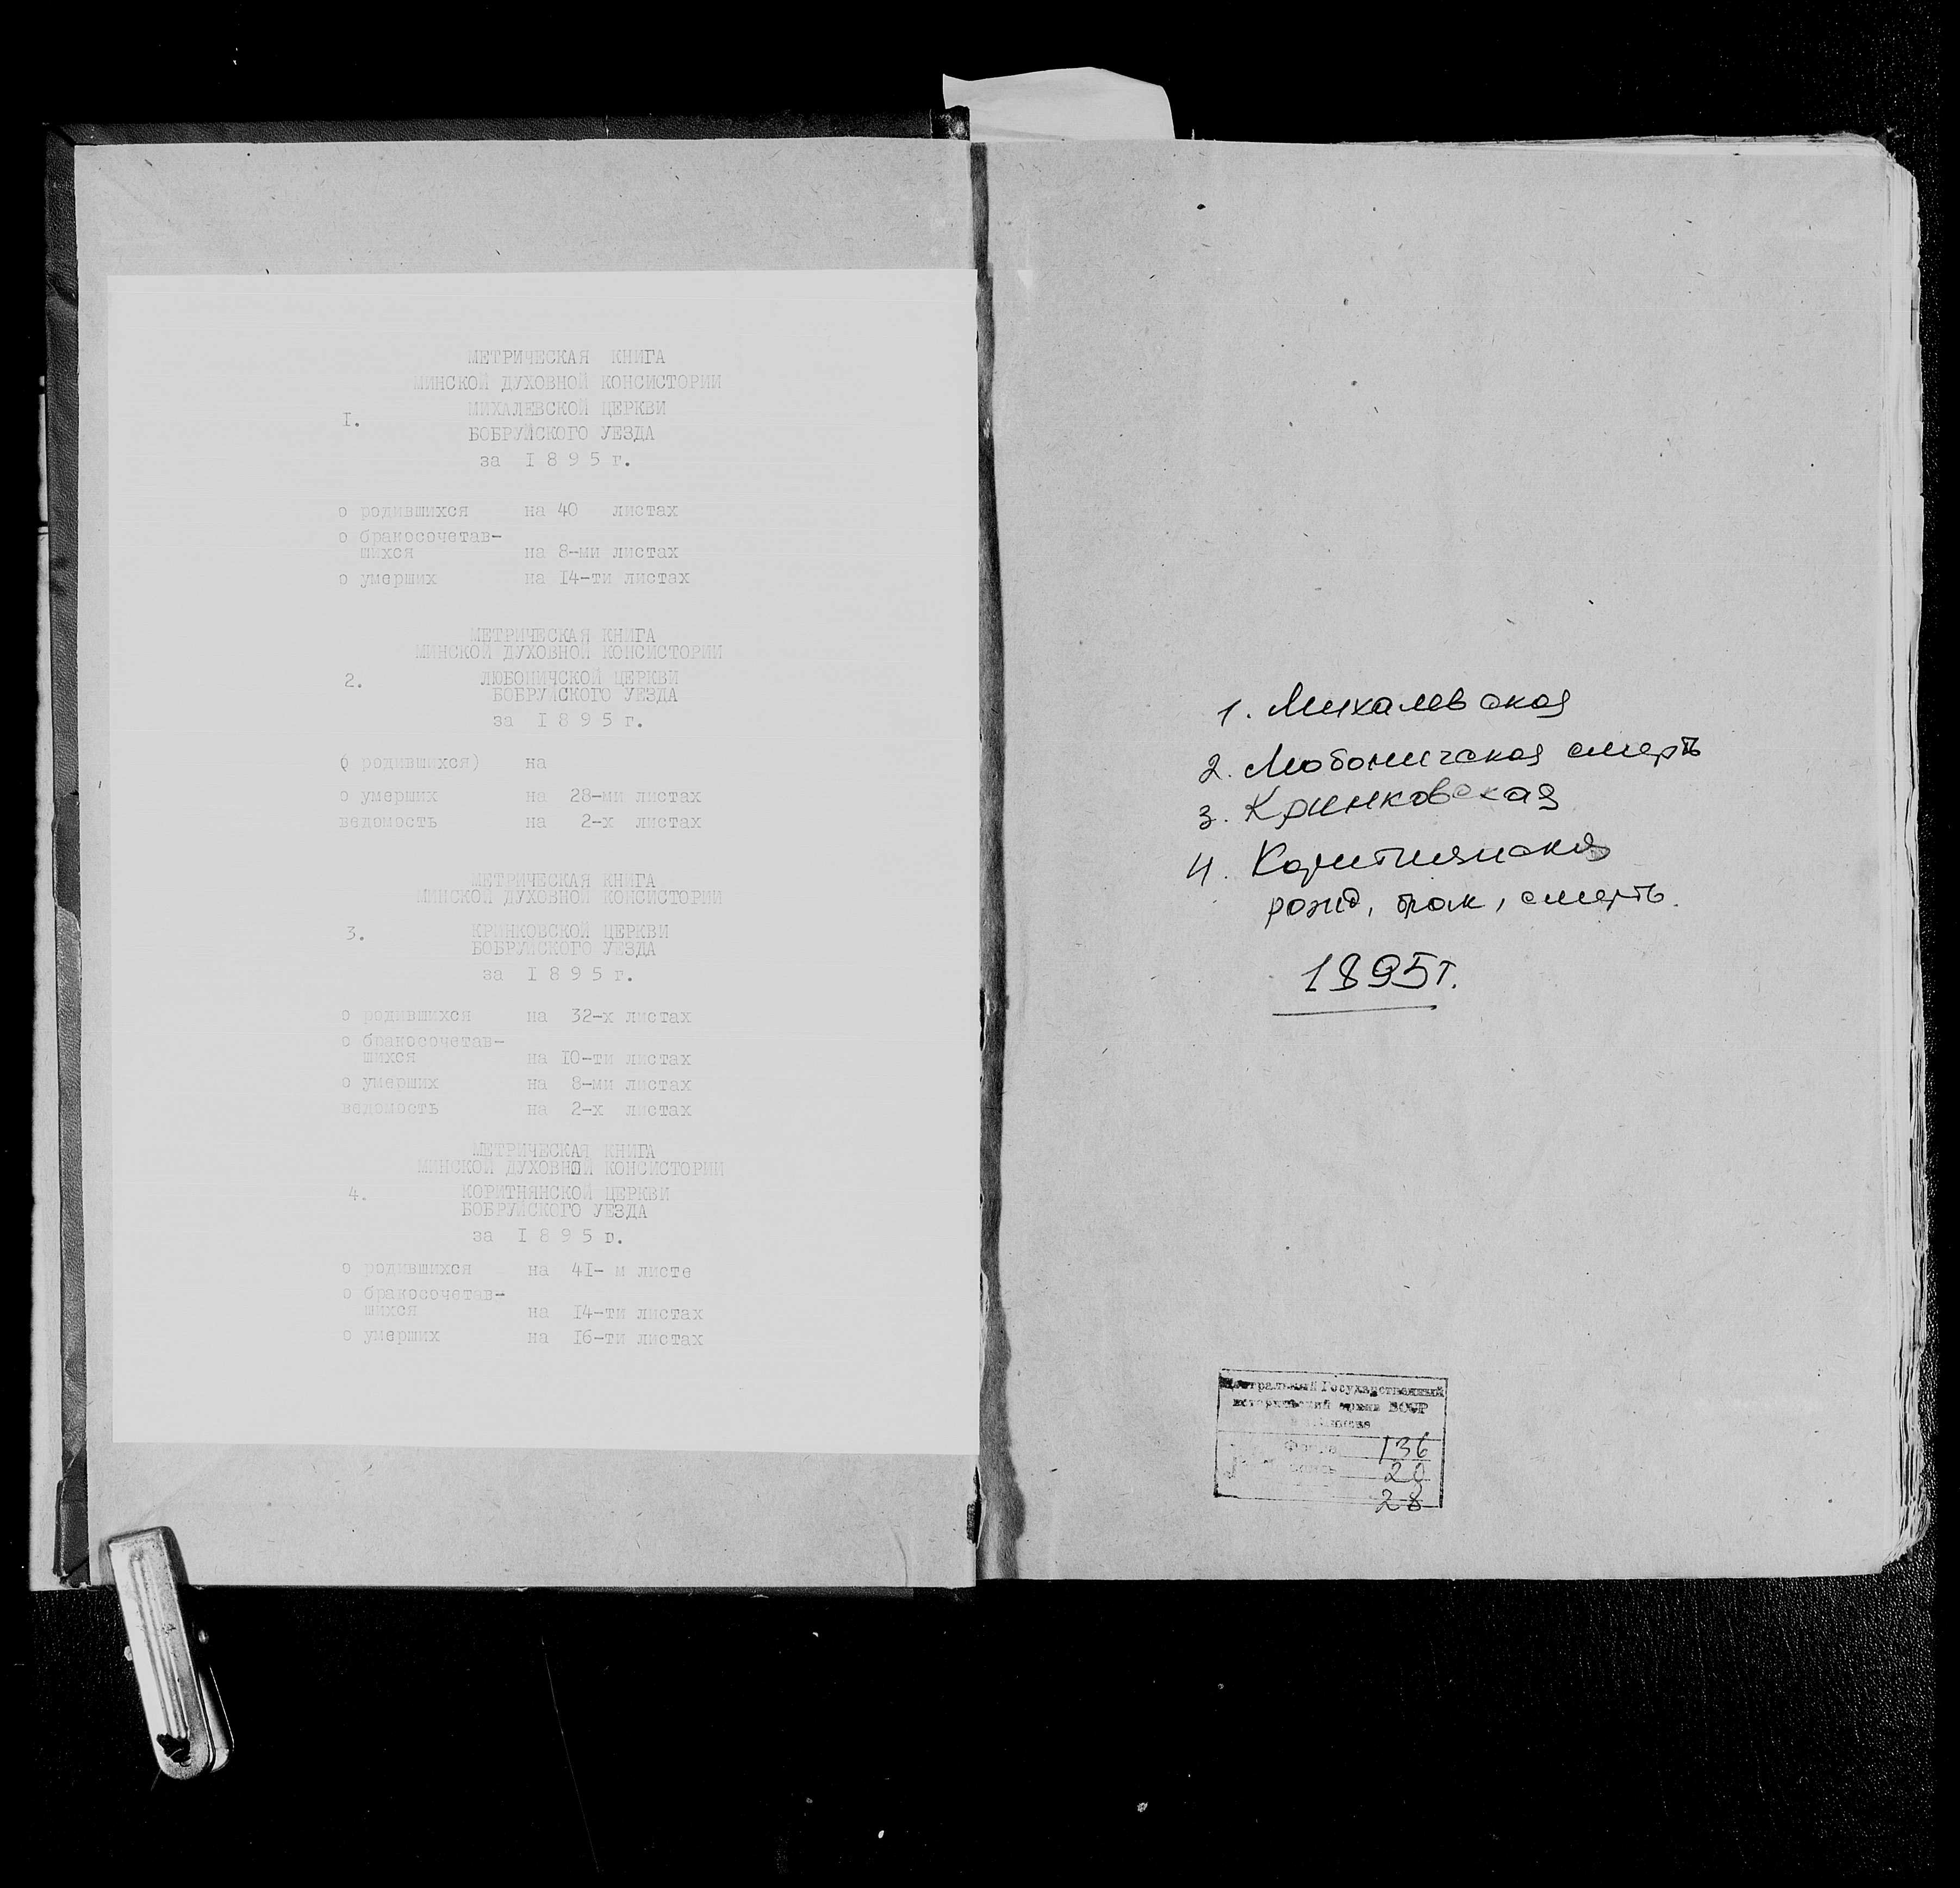 МЕТРИЧЕСКАЯ КНИГА
МИНСКОЙ ДУХОВНОЙ КОНСИСТОРИИ
1. МИХАЛЕВСКОЙ ЦЕРКВИ
БОБРУЙСКОГО УЕЗДА
за I 8 9 5 г.
о родившихся на 40 листах
о бракосочетав-
шихся на 8-ми листах
о умерших на I4-ти листах
МЕТРИЧЕСКАЯ КНИГА
МИНСКОЙ ДУХОВНОЙ КОНСИСТОРИИ
2. ЛЮБОНИЧСКОЙ ЦЕРКВИ
БОБРУЙСКОГО УЕЗДА
за I 8 9 5 г.
(о родившихся) на
о умерших на 28-ми листах
ведомость на 2-х листах
МЕТРИЧЕСКАЯ КНИГА
МИНСКОЙ ДУХОВНОЙ КОНСИСТОРИИ
3. КРИНКОВСКОЙ ЦЕРКВИ
БОБРУЙСКОГО УЕЗДА
за I 8 9 5 г.
о родившихся на 32-х листах
о бракосочетав-
шихся на I0-ти листах
о умерших на 8-ми листах
ведомость на 2-х листах
МЕТРИЧЕСКАЯ КНИГА
МИНСКОЙ ДУХОВНОЙ КОНСИСТОРИИ
4. КОРИТНЯНСКОЙ ЦЕРКВИ
БОБРУЙСКОГО УЕЗДА
за I 8 9 5 г.
о родившихся на 4I- м листе
о бракосочетав-
шихся на I4-ти листах
о умерших на I6-ти листах
1. Михалевская
2. Любоничская смерть
3. Кринковская
4. Коритнянская
рожд, брак, смерть.
1895 г.
Центральный Государственный
исторический архив БССР
Фонд 136
опись 20
28